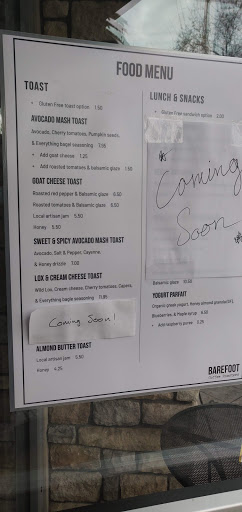 FOOD MENU
TOAST
• Gluten Free toast option 1.50
AVOCADO MASH TOAST
Avocado, Cherry tomatoes, Pumpkin seeds,
& Everything bagel seasoning 7.95
• Add goat cheese 1.25
• Add roasted tomatoes & balsamic glaze 1.50
GOAT CHEESE TOAST
Roasted red pepper & Balsamic glaze 6.50
Roasted tomatoes & Balsamic glaze 6.50
Local artisan jam 5.50
Honey 5.50
SWEET & SPICY AVOCADO MASH TOAST
Avocado, Salt & Pepper, Cayenne,
& Honey drizzle 7.00
LOX & CREAM CHEESE TOAST
Wild Lox, Cream cheese, Cherry tomatoes, Capers,
& Everything bagel seasoning 11.95
Coming Soon!
ALMOND BUTTER TOAST
Local artisan jam 5.50
Honey 4.25
LUNCH & SNACKS
• Gluten free sandwich option 2.00
Coming
Soon
Balsamic glaze
YOGURT PARFAIT
Organic greek yogurt, Honey almond granola
Blueberries, & Maple syrup 6.50
• Add raspberry puree
BAREFOOT